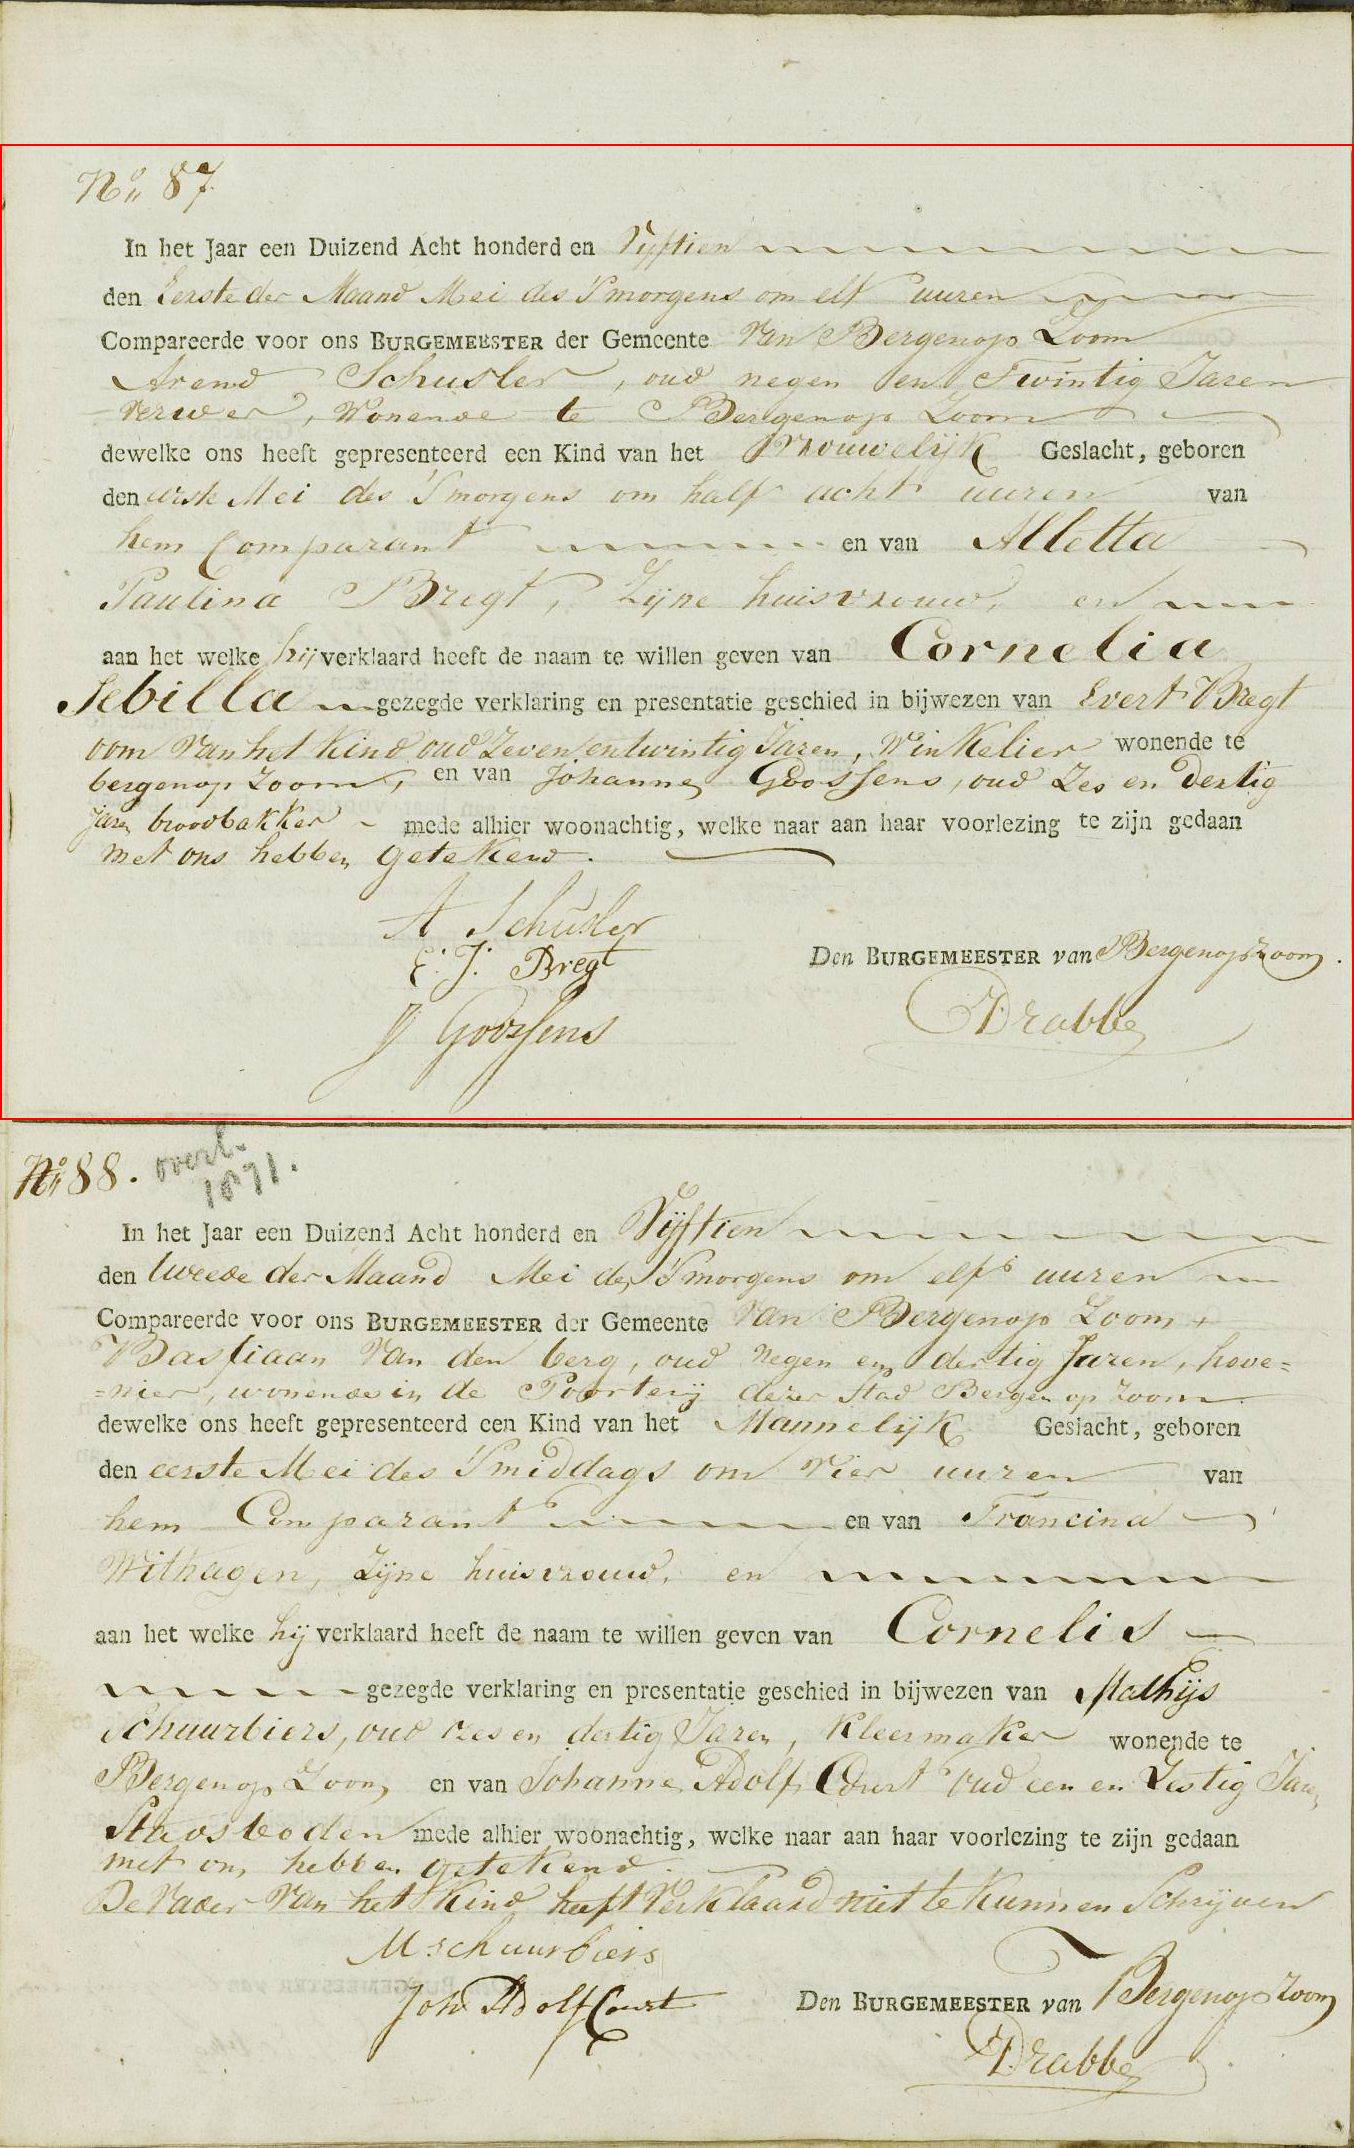 No. 87.
In het Jaar een Duizend Acht honderd en Vyftien
den Eerste der Maand Mei des S'morgens om elf uuren
Compareerde voor ons BURGEMEESTER der Gemeente Van Bergenop Zoom
Arend Schusler, oud negen en Twintig Jaren
Verwer, Wonende te Bergenop Zoom
dewelke ons heeft gepresenteerd een Kind van het Vrouwelijk Geslacht, geboren
den eerste Mei des S'morgens om half acht uuren van
hem Comparant en van Alletta
Paulina Bregt, Zijne huisvrouw, en
aan het welke hij verklaard heeft de naam te willen geven van Cornelia
Sebilla gezegde verklaring en presentatie geschied in bijwezen van Evert Bregt
oom van het Kind oud Zeven entwintig Jaren, Winkelier wonende te
bergenop Zoom, en van Johannes Goossens, oud Zes en dertig
Jaren broodbakker - mede alhier woonachtig, welke naar aan haar voorlezing te zijn gedaan
met ons hebben getekend.
A Schusler
E. J. Bregt
Den BURGEMEESTER van Bergenopzoom.
J Goossens
Drabbe
No. 88. overl. 1871.
In het Jaar een Duizend Acht honderd en Vijftien
den tweede der Maand Mei des S'morgens om elf uuren
Compareerde voor ons BURGEMEESTER der Gemeente Van Bergenop Zoom
Bastiaan Van den berg, oud Negen en dertig Jaren, hove=
=nier, wonende in de Poorterij dezer Stad Bergen op zoom
dewelke ons heeft gepresenteerd een Kind van het Mannelijk Geslacht, geboren
den eerste Mei des S'middags om Vier uuren van
hem Comparant en van Francina
Withagen, Zijne huisvrouw, en
aan het welke hij verklaard heeft de naam te willen geven van Cornelis
gezegde verklaring en presentatie geschied in bijwezen van Mathijs
Schuurbiers, oud zes en dertig Jaren, Kleermaker wonende te
Bergenop Zoom, en van Johannes Adolf Court oud een en Zestig Jaren
Stadsboden mede alhier woonachtig, welke naar aan haar voorlezing te zijn gedaan
met ons hebben getekend.
De Vader van het Kind heeft Verklaard niet te Kunnen Schrijven
M schuurbiers
Joh Adolf Court
Den BURGEMEESTER van Bergenop Zoom
Drabbe